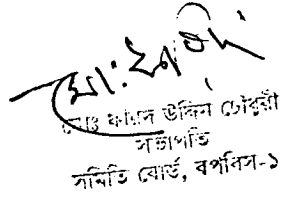 মো: ফরিদ
মোঃ ফরিদ উদ্দিন চৌধুরী
সভাপতি
সমিতি বোর্ড, বপবিস-১